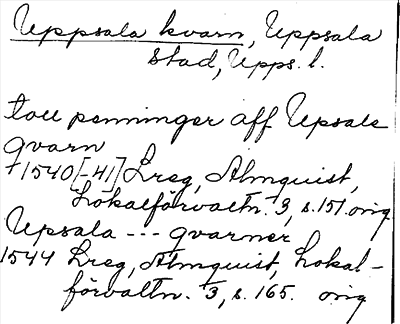 Uppsala kvarn, Uppsala
stad, Upps. l.
toll penninger aff Upsale
qvarn
†1540[-41] Lreg, Almquist,
Lokalförvaltn. 3, s. 151. orig
Upsala --- qvarner
1544 Lreg, Almquist, Lokal-
förvaltn. 3, s. 165. orig